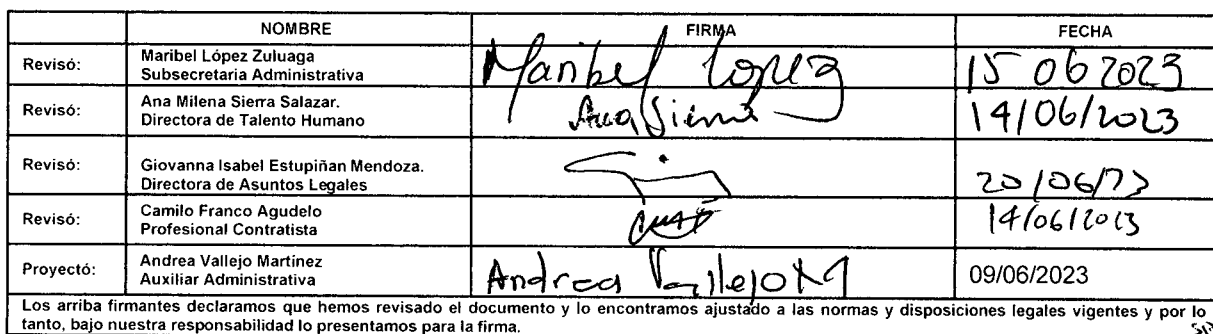 NOMBRE FIRMA FECHA
Revisó: Maribel López Zuluaga
Subsecretaria Administrativa Maribel Lopez 15 06 2023
Revisó: Ana Milena Sierra Salazar.
Directora de Talento Humano Ana Sierra 14/06/2023
Revisó: Giovanna Isabel Estupiñan Mendoza.
Directora de Asuntos Legales 20/06/23
Revisó: Camilo Franco Agudelo
Profesional Contratista 14/06/2023
Proyectó: Andrea Vallejo Martínez
Auxiliar Administrativa Andrea Vallejo M 09/06/2023
Los arriba firmantes declaramos que hemos revisado el documento y lo encontramos ajustado a las normas y disposiciones legales vigentes y por lo
tanto, bajo nuestra responsabilidad lo presentamos para la firma.